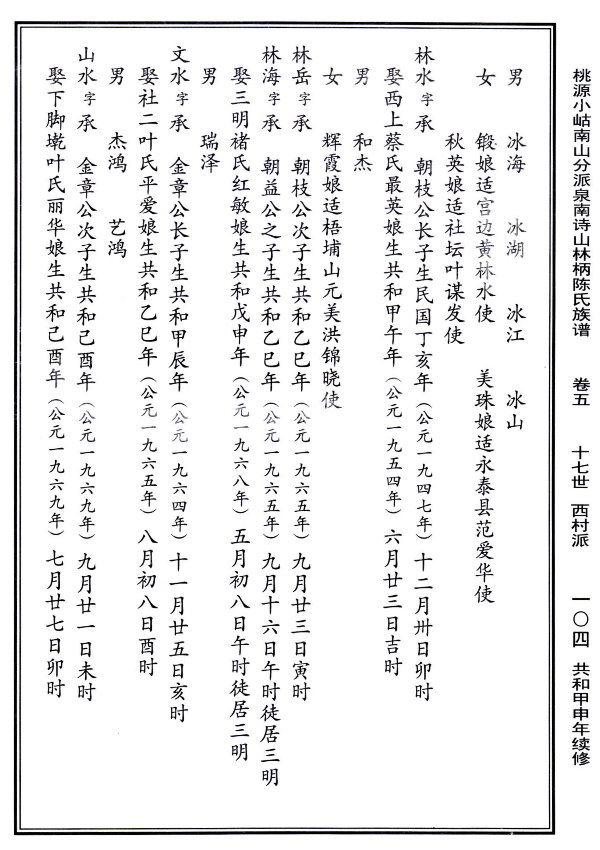 桃源小岵南山分派泉南诗山林柄陈氏族谱 卷五 十七世 西村派 一〇四 共和甲申年续修
男 冰海 冰湖 冰江 冰山
女 锻娘适宫边黄林水使 美珠娘适永泰县范爱华使
秋英娘适社坛叶谋发使
林水字承 朝枝公长子生民国丁亥年（公元一九四七年）十二月卅日卯时
娶西上蔡氏最英娘生共和甲午年（公元一九五四年）六月廿三日吉时
男 和杰
女 辉霞娘适梧埔山元美洪锦晓使
林岳字承 朝枝公次子生共和乙巳年（公元一九六五年）九月廿三日寅时
林海字承 朝益公之子生共和乙巳年（公元一九六五年）九月十六日午时徒居三明
娶三明褚氏红敏娘生共和戊申年（公元一九六八年）五月初八日午时徒居三明
男 瑞泽
文水字承 金章公长子生共和甲辰年（公元一九六四年）十一月廿五日亥时
娶社二叶氏平爱娘生共和乙巳年（公元一九六五年）八月初八日酉时
男 杰鸿 艺鸿
山水字承 金章公次子生共和己酉年（公元一九六九年）九月廿一日未时
娶下脚墘叶氏丽华娘生共和己酉年（公元一九六九年）七月廿七日卯时